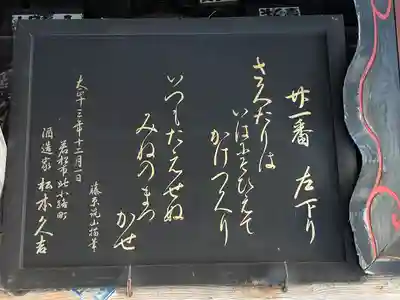 廿一番 左下り
さくたりは
いはにそひえて
かけつくり
いつもたえせぬ
みねのまつ
かせ
年十二月一日
若松市北小路町
酒造家 松本久吉